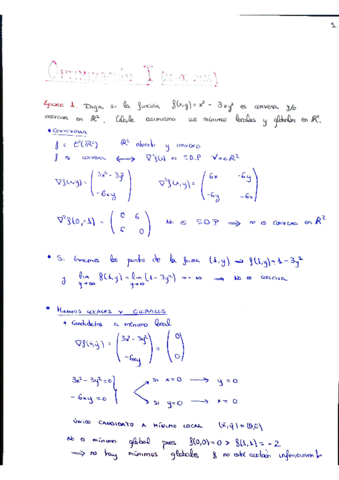 1
Optimización I
Ejercicio 1. Diga si la función f(x,y) = x³ - 3xy² es convexa y/o
cóncava en ℝ². Calcule asimismo sus mínimos locales y globales en ℝ².
• CONVEXIDAD
f ∈ C²(ℝ²) ℝ² abierto y convexo
f es convexa ⟷ ∇²f(x) es S.D.P ∀x∈ℝ²
∇f(x,y) = (3x² - 3y² / -6xy) ∇²f(x,y) = (6x -6y / -6y -6x)
∇²f(0,-1) = (0 6 / 6 0) No es S.D.P ⟶ no es convexa en ℝ²
• Si tomamos los puntos de la forma (1,y) ⟹ f(1,y) = 1 - 3y²
y lim y→∞ f(1,y) = lim y→∞ (1 - 3y²) = -∞ ⟹ No es
• MÍNIMOS LOCALES Y GLOBALES
• Candidatos a mínimo local
∇f(x,y) = (3x² - 3y² / -6xy) = (0 / 0)
3x² - 3y² = 0 si x=0 ⟶ y=0
-6xy = 0 si y=0 ⟶ x=0
ÚNICO CANDIDATO A MÍNIMO LOCAL (x,y) = (0,0)
No es mínimo global pues f(0,0) = 0 > f(1,1) = -2
⟶ no hay mínimos globales f no está acotada inferiormente